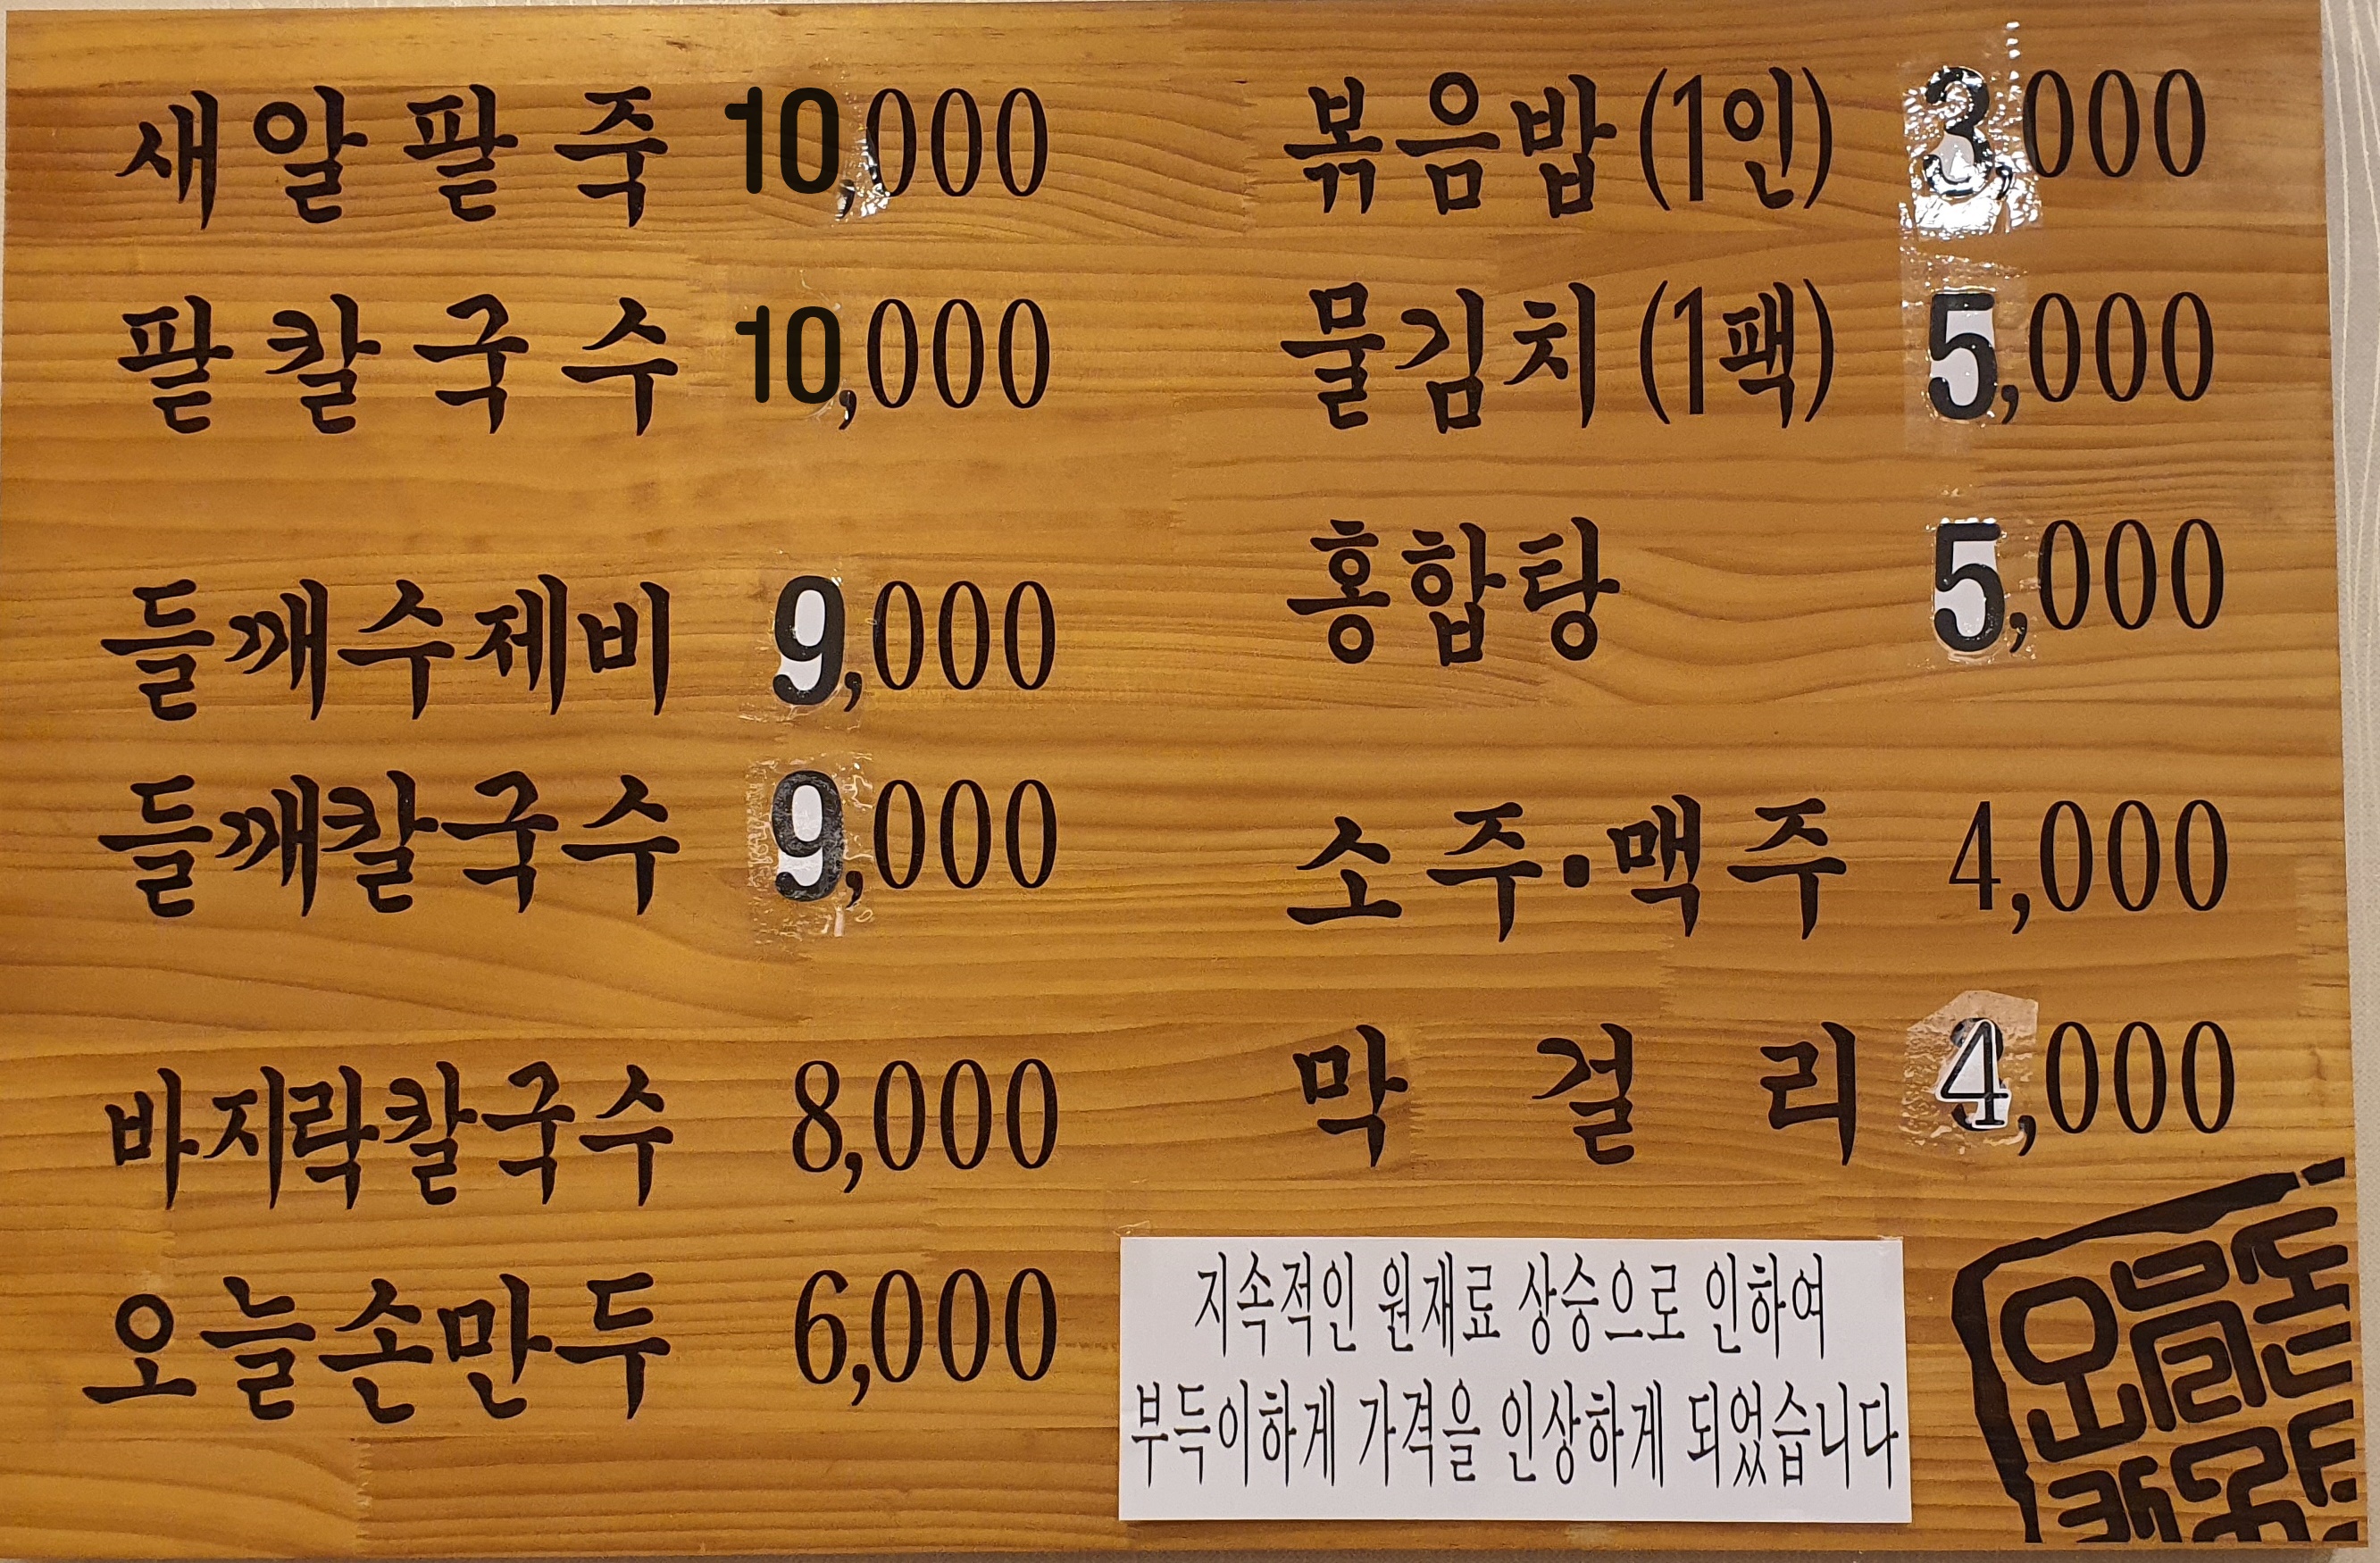 새알팥죽 10,000
팥칼국수 10,000
들깨수제비 9,000
들깨칼국수 9,000
바지락칼국수 8,000
오늘손만두 6,000
볶음밥(1인) 3,000
물김치(1팩) 5,000
홍합탕 5,000
소주·맥주 4,000
막걸리 4,000
지속적인 원재료 상승으로 인하여
부득이하게 가격을 인상하게 되었습니다